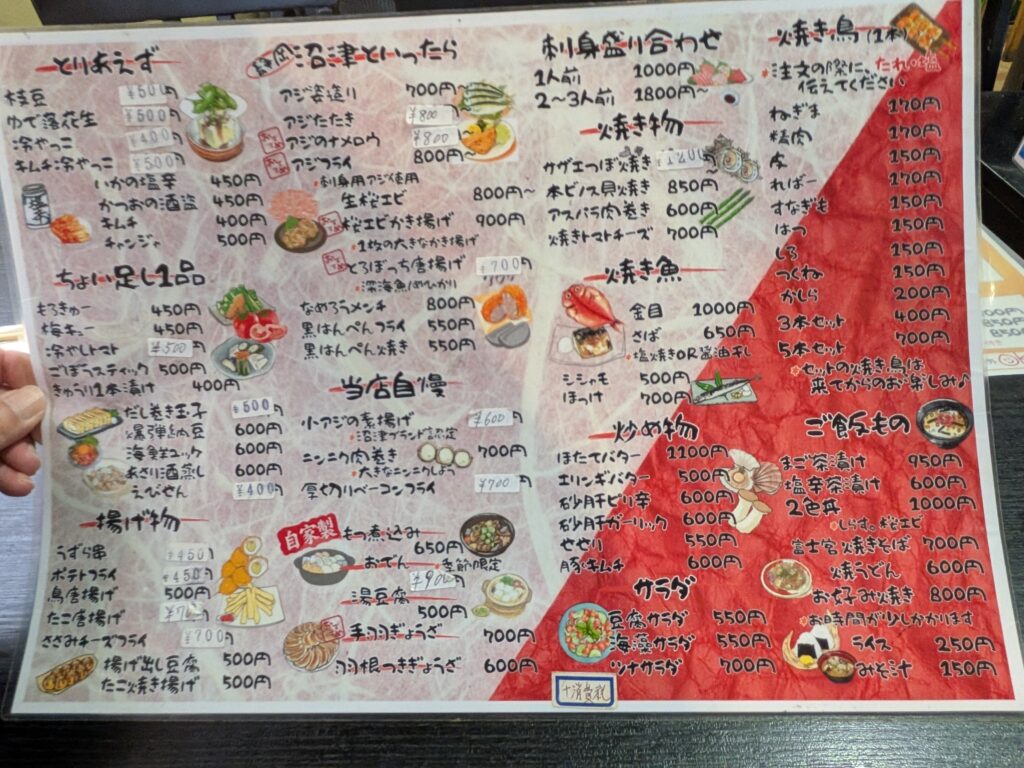 とりあえず
枝豆 ¥500
ゆで落花生 ¥500
冷やっこ ¥400
キムチ冷やっこ ¥500
いかの塩辛 450円
かつおの酒盗 450円
キムチ 400円
チャンジャ 500円
ちょい足し1品
もろきゅー 450円
梅キュー 450円
冷やしトマト ¥500
ごぼうスティック 500円
きゅうり1本漬け 400円
だし巻き玉子 ¥600
爆弾納豆 600円
海鮮ユッケ 600円
あさり酒蒸し 600円
えびせん ¥400
揚げ物
うずら串 ¥450
ポテトフライ ¥450
鳥唐揚げ 500円
たこ唐揚げ
ささみチーズフライ ¥700
揚げ出し豆腐 500円
たこ焼き揚げ 500円
沼津といったら
アジ姿造り 700円~
アジたたき ¥800
アジのナメロウ ¥800
アジフライ 800円~
*刺身用アジ使用
生桜エビ 800円~
桜エビかき揚げ 900円
*1枚の大きなかき揚げ
とろぼっち唐揚げ ¥700
*深海魚/めひかり
なめろうメンチ 800円
黒はんぺんフライ 550円
黒はんぺん焼き 550円
当店自慢
小アジの素揚げ ¥600
*沼津ブランド認定
ニンニク肉巻き 700円
*大きなニンニクしよう
厚切りベーコンフライ ¥700
自家製
もつ煮込み 650円
おでん 季節限定 ¥900
湯豆腐 500円
手羽ぎょうざ 700円
羽根つきぎょうざ 600円
刺身盛り合わせ
1人前 1000円
2~3人前 1800円~
焼き物
サザエつぼ焼き ¥1200
本ビノス貝焼き 850円
アスパラ肉巻き 600円
焼きトマトチーズ 700円
焼き魚
金目 1000円
さば 650円
*塩焼きOR醤油干し
シシャモ 500円
ほっけ 700円
炒め物
ほたてバター 1100円
エリンギバター 500円
砂肝ピリ辛 600円
砂肝ガーリック 600円
せせり 550円
豚キムチ 600円
サラダ
豆腐サラダ 550円
海藻サラダ 550円
ツナサラダ 700円
+消費税
焼き鳥(1本)
*注文の際に、たれor塩
伝えてください
ねぎま 170円
精肉 170円
皮 150円
ればー 170円
すなぎも 150円
はつ 150円
しろ 150円
つくね 150円
かしら 200円
3本セット 400円
5本セット 700円
*セットの焼き鳥は
来てからのお楽しみ♪
ご飯もの
まご茶漬け 950円
塩辛茶漬け 600円
2色丼 1000円
*しらす。桜エビ
富士宮焼きそば 700円
焼うどん 600円
お好み焼き 800円
*お時間が少しかかります
ライス 250円
みそ汁 150円